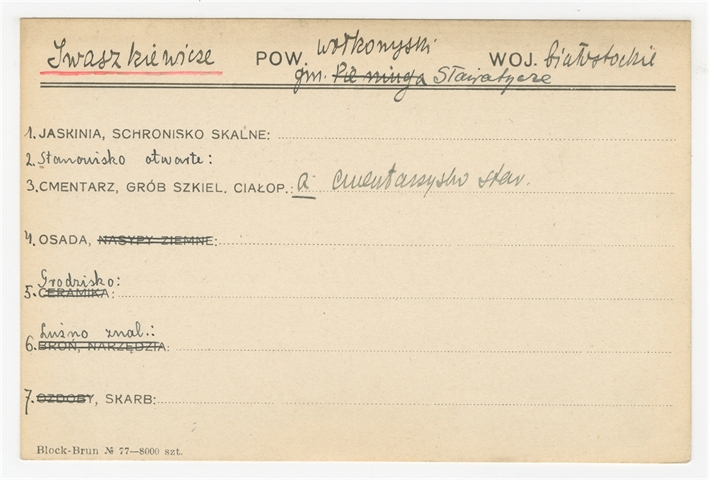 Iwaszkiewicze POW. wołkonyski WOJ. białostockie
gm.
1. JASKINIA, SCHRONISKO SKALNE:
2. Stanowisko otwarte:
3. CMENTARZ, GRÓB SZKIEL. CIAŁOP.: a cmentarzysko star.
4. OSADA, NASYPY ZIEMNE:
Grodzisko:
5. CERAMIKA:
Luźno znal.:
6. BROŃ, NARZĘDZIA:
7. OZDOBY, SKARB:
Block-Brun № 77—8000 szt.